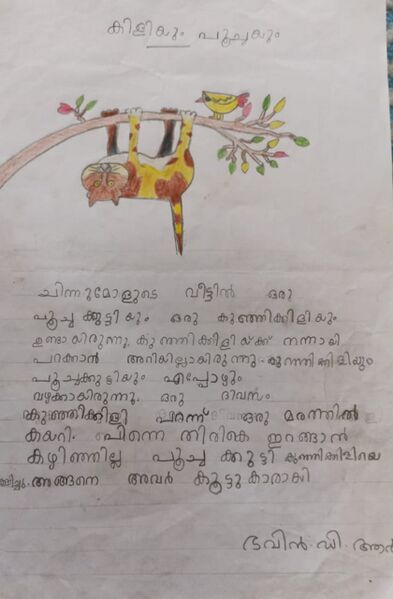 കിളിയും പൂച്ചയും
ചിന്നുമോളുടെ വീട്ടിൽ ഒരു
പൂച്ച ക്കുട്ടിയും ഒരു കുഞ്ഞിക്കിളിയും
ഉണ്ടായിരുന്നു. കുഞ്ഞിക്കിളിയ്ക്ക് നന്നായി
പറക്കാൻ അറിയില്ലായിരുന്നു. കുഞ്ഞിക്കിളിയും
പൂച്ചക്കുട്ടിയും എപ്പോഴും
വഴക്കായിരുന്നു. ഒരു ദിവസം
കുഞ്ഞിക്കിളി പറന്ന് ഒരു മരത്തിൽ
കയറി. പിന്നെ തിരികെ ഇറങ്ങാൻ
കഴിഞ്ഞില്ല പൂച്ച ക്കുട്ടി കുഞ്ഞിക്കിളിയെ
അങ്ങനെ അവർ കൂട്ടുകാരായി
ഭവിൻ. ഡി. ആർ